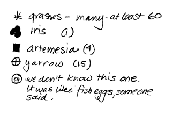 grasses - many - at least 60
iris (1)
artemesia (9)
yarrow (15)
we don't know this one.
It was like fish eggs, someone
said.